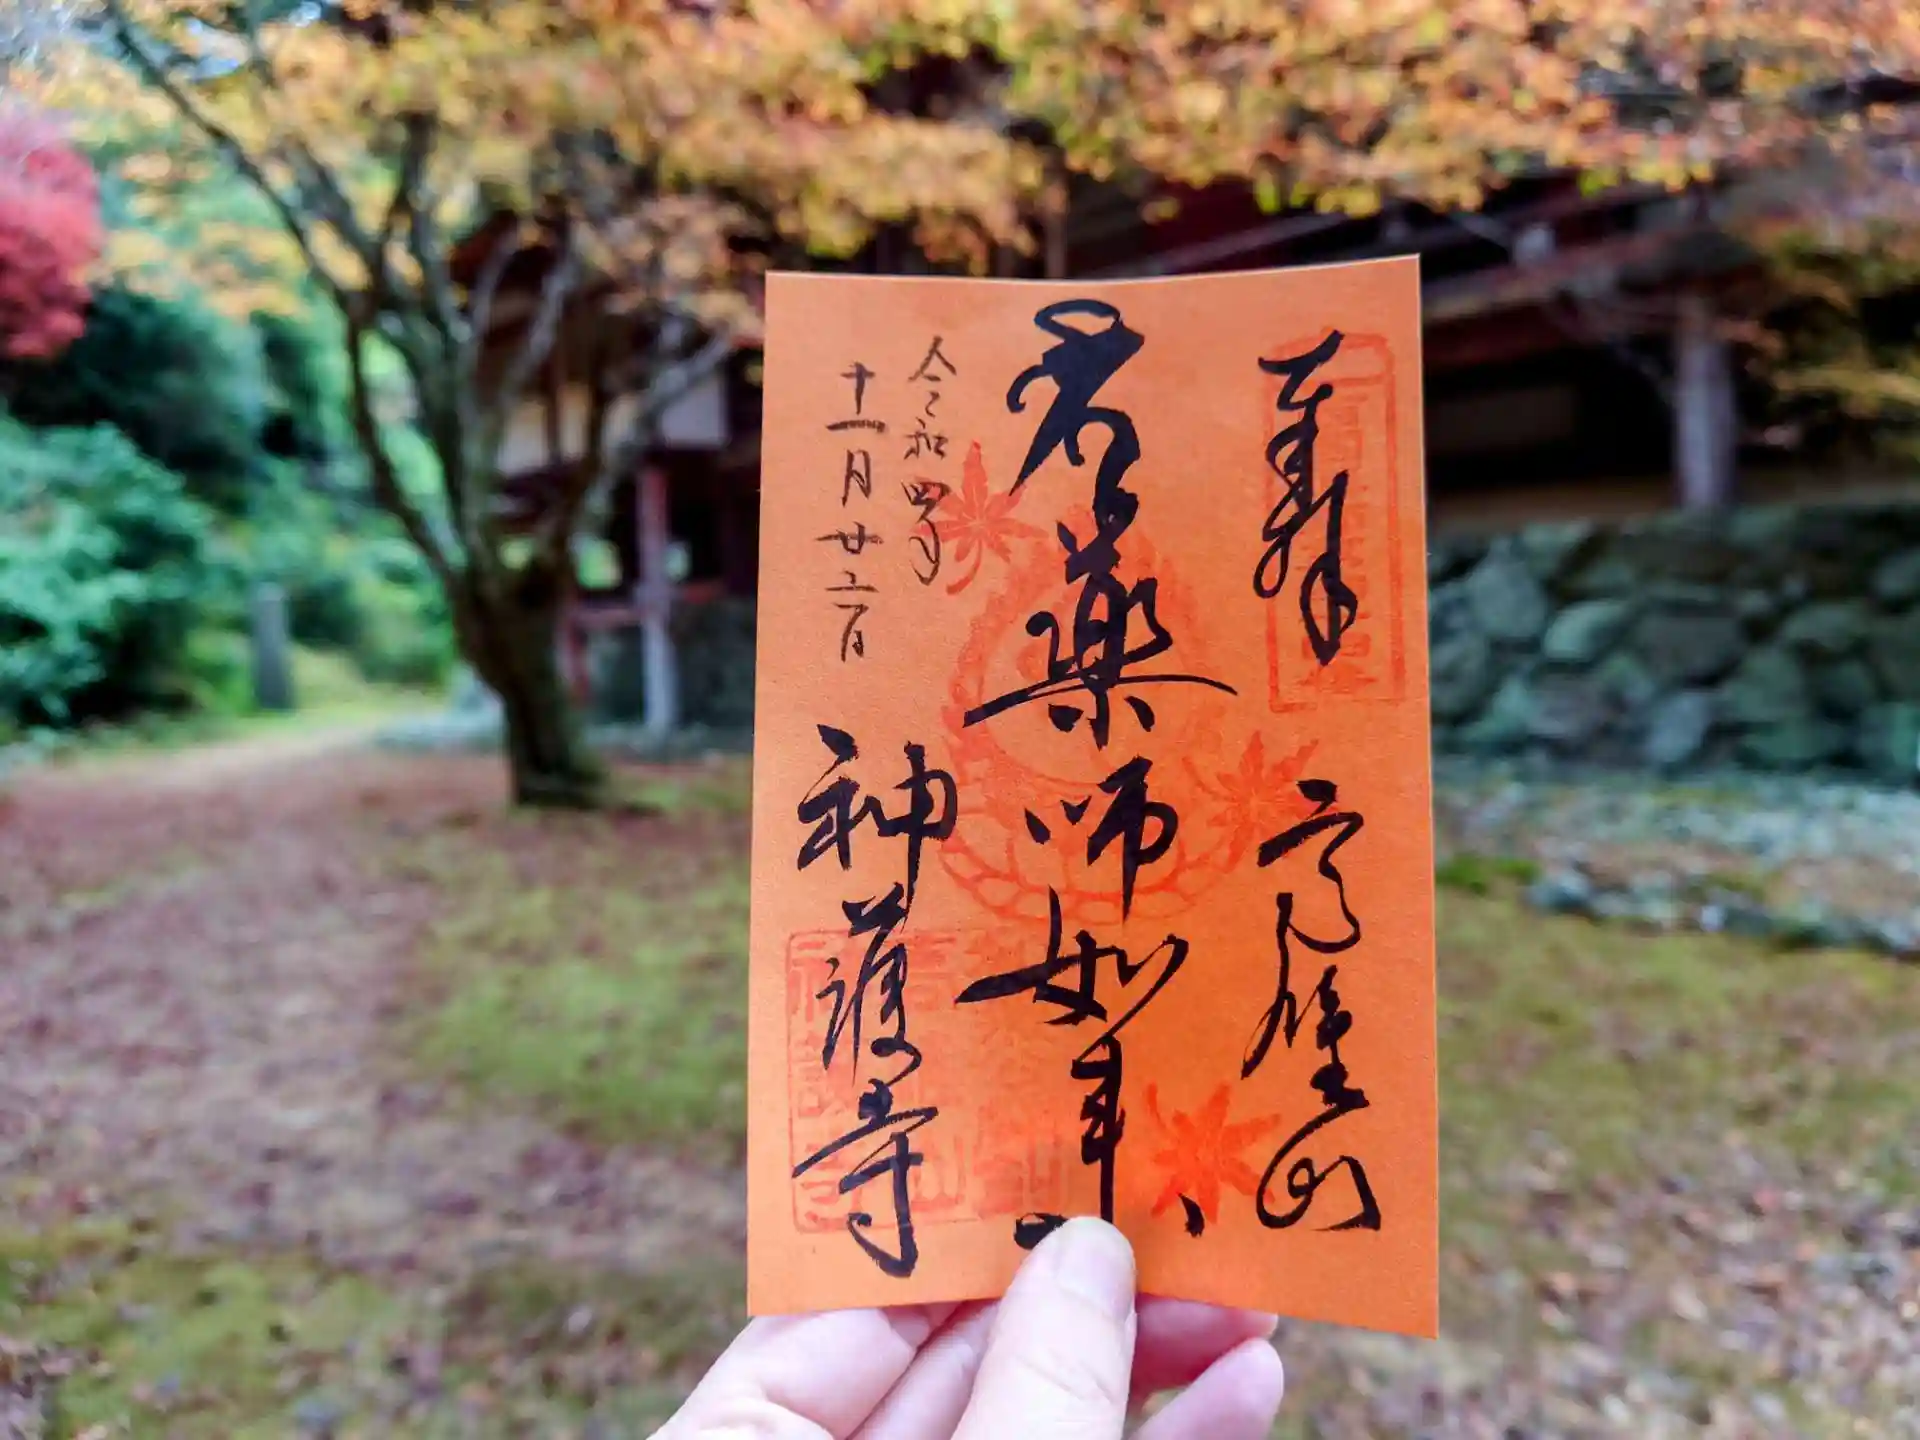 奉拝 高雄山
薬師如来
令和四年
十一月廿二日
神護寺